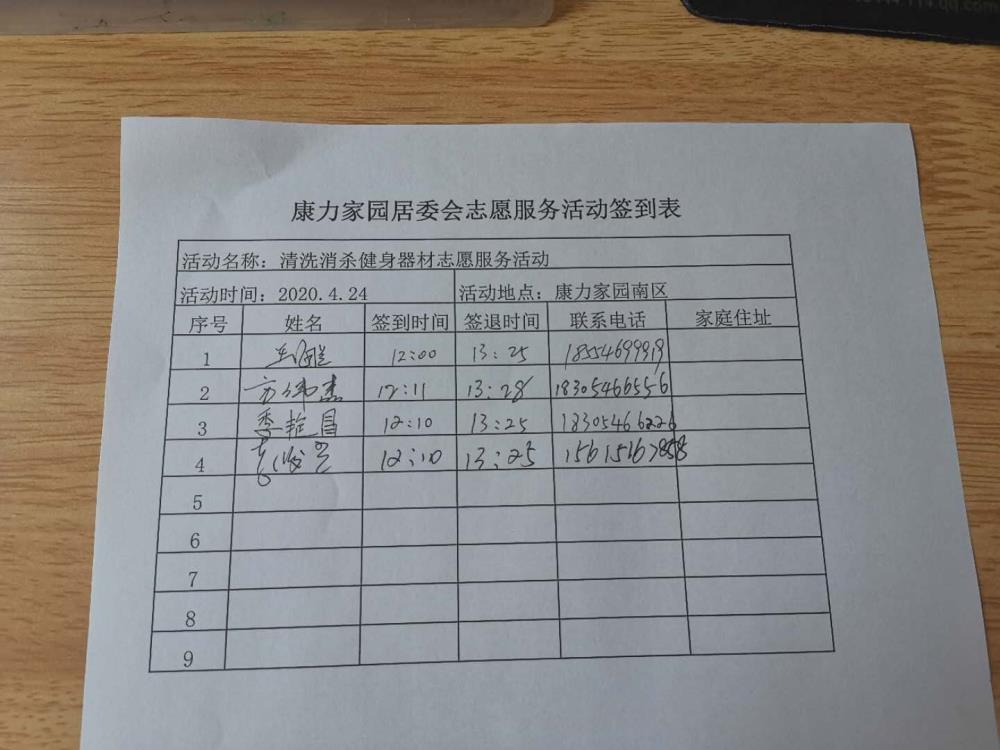 康力家园居委会志愿服务活动签到表
活动名称：清洗消杀健身器材志愿服务活动
活动时间：2020.4.24 活动地点：康力家园南区
序号 姓名 签到时间 签退时间 联系电话 家庭住址
1 12:00 13:25 18554699919
2 方伟杰 12:11 13:28 18305466556
3 季艳昌 12:10 13:25 18305466226
4 12:10 13:25 15615167858
5
6
7
8
9